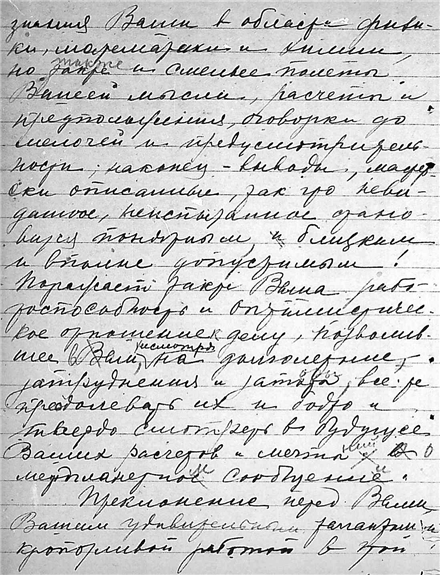 знания Ваши в области физи-
ки, математики и химии,
но также и смелые полеты
Вашей мысли, расчеты и
предположения, оговорки до
мелочей и предусмотритель-
ности; наконец – выводы, мастер-
ски описанные, так что неви-
данное, неиспытанное стано-
вится понятным, и близким
и вполне допустимым!
Поражает также Ваша рабо-
тоспособность и оптимистичес-
кое отношение к делу, позволив-
шее Вам, несмотря на долголетние
затруднения и
преодолевать их и бодро и
твердо смотреть в будущее
Ваших расчетов и мечтаний о
межпланетном сообщении.
Преклонение перед Вами,
Вашим удивительным талантом и
кропотливой работой в этой